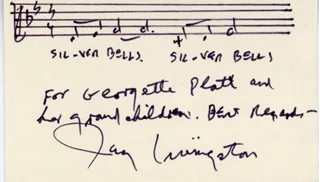 SIL-VER BELLS. SIL-VER BELLS
For Georgette Platt and
her grandchildren. Best Regards—
Jay Livingston